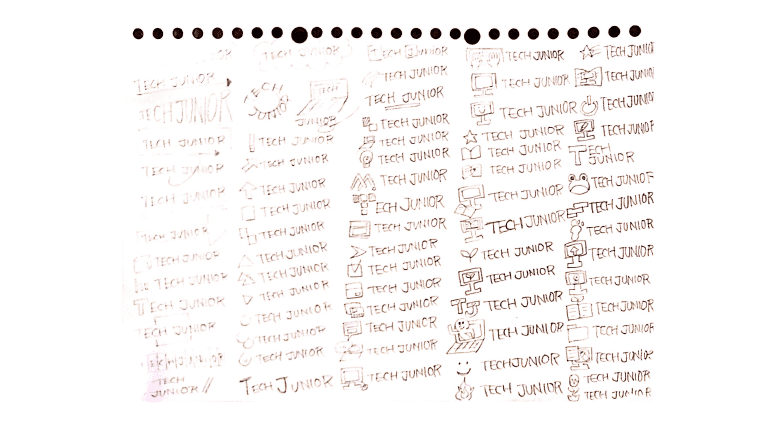 TECH JUNIOR
TECH JUNIOR
TECH JUNIOR
TECH JUNIOR
TECH JUNIOR
TECH JUNIOR
TECH JUNIOR
TECH JUNIOR
TECH JUNIOR
TECH JUNIOR
TECH JUNIOR
TECH
JUNIOR //
TECH JUNIOR
TECH
JUNIOR
TECH
JUNIOR
TECH JUNIOR
TECH JUNIOR
TECH JUNIOR
TECH JUNIOR
TECH JUNIOR
TECH JUNIOR
TECH JUNIOR
TECH JUNIOR
TECH JUNIOR
TECH JUNIOR
TECH JUNIOR
TECH JUNIOR
TECH JUNIOR
TECH JUNIOR
TECH JUNIOR
TECH JUNIOR
TECH JUNIOR
TECH JUNIOR
TECH JUNIOR
TECH JUNIOR
TECH JUNIOR
TECH JUNIOR
TECH JUNIOR
TECH JUNIOR
TECH JUNIOR
TECH JUNIOR
TECH JUNIOR
TECH JUNIOR
TECH JUNIOR
TECH JUNIOR
TECH JUNIOR
TECH JUNIOR
TECH JUNIOR
TECH JUNIOR
TECH JUNIOR
TECH JUNIOR
TECH JUNIOR
TECH JUNIOR
TJ TECH JUNIOR
TECH JUNIOR
TECH JUNIOR
TECH JUNIOR
TECH JUNIOR
TECH JUNIOR
TECH JUNIOR
TECH JUNIOR
TECH
JUNIOR
TECH JUNIOR
TECH JUNIOR
TECH JUNIOR
TECH JUNIOR
TECH JUNIOR
TECH JUNIOR
TECH JUNIOR
TECH JUNIOR
TECH JUNIOR
TECH JUNIOR